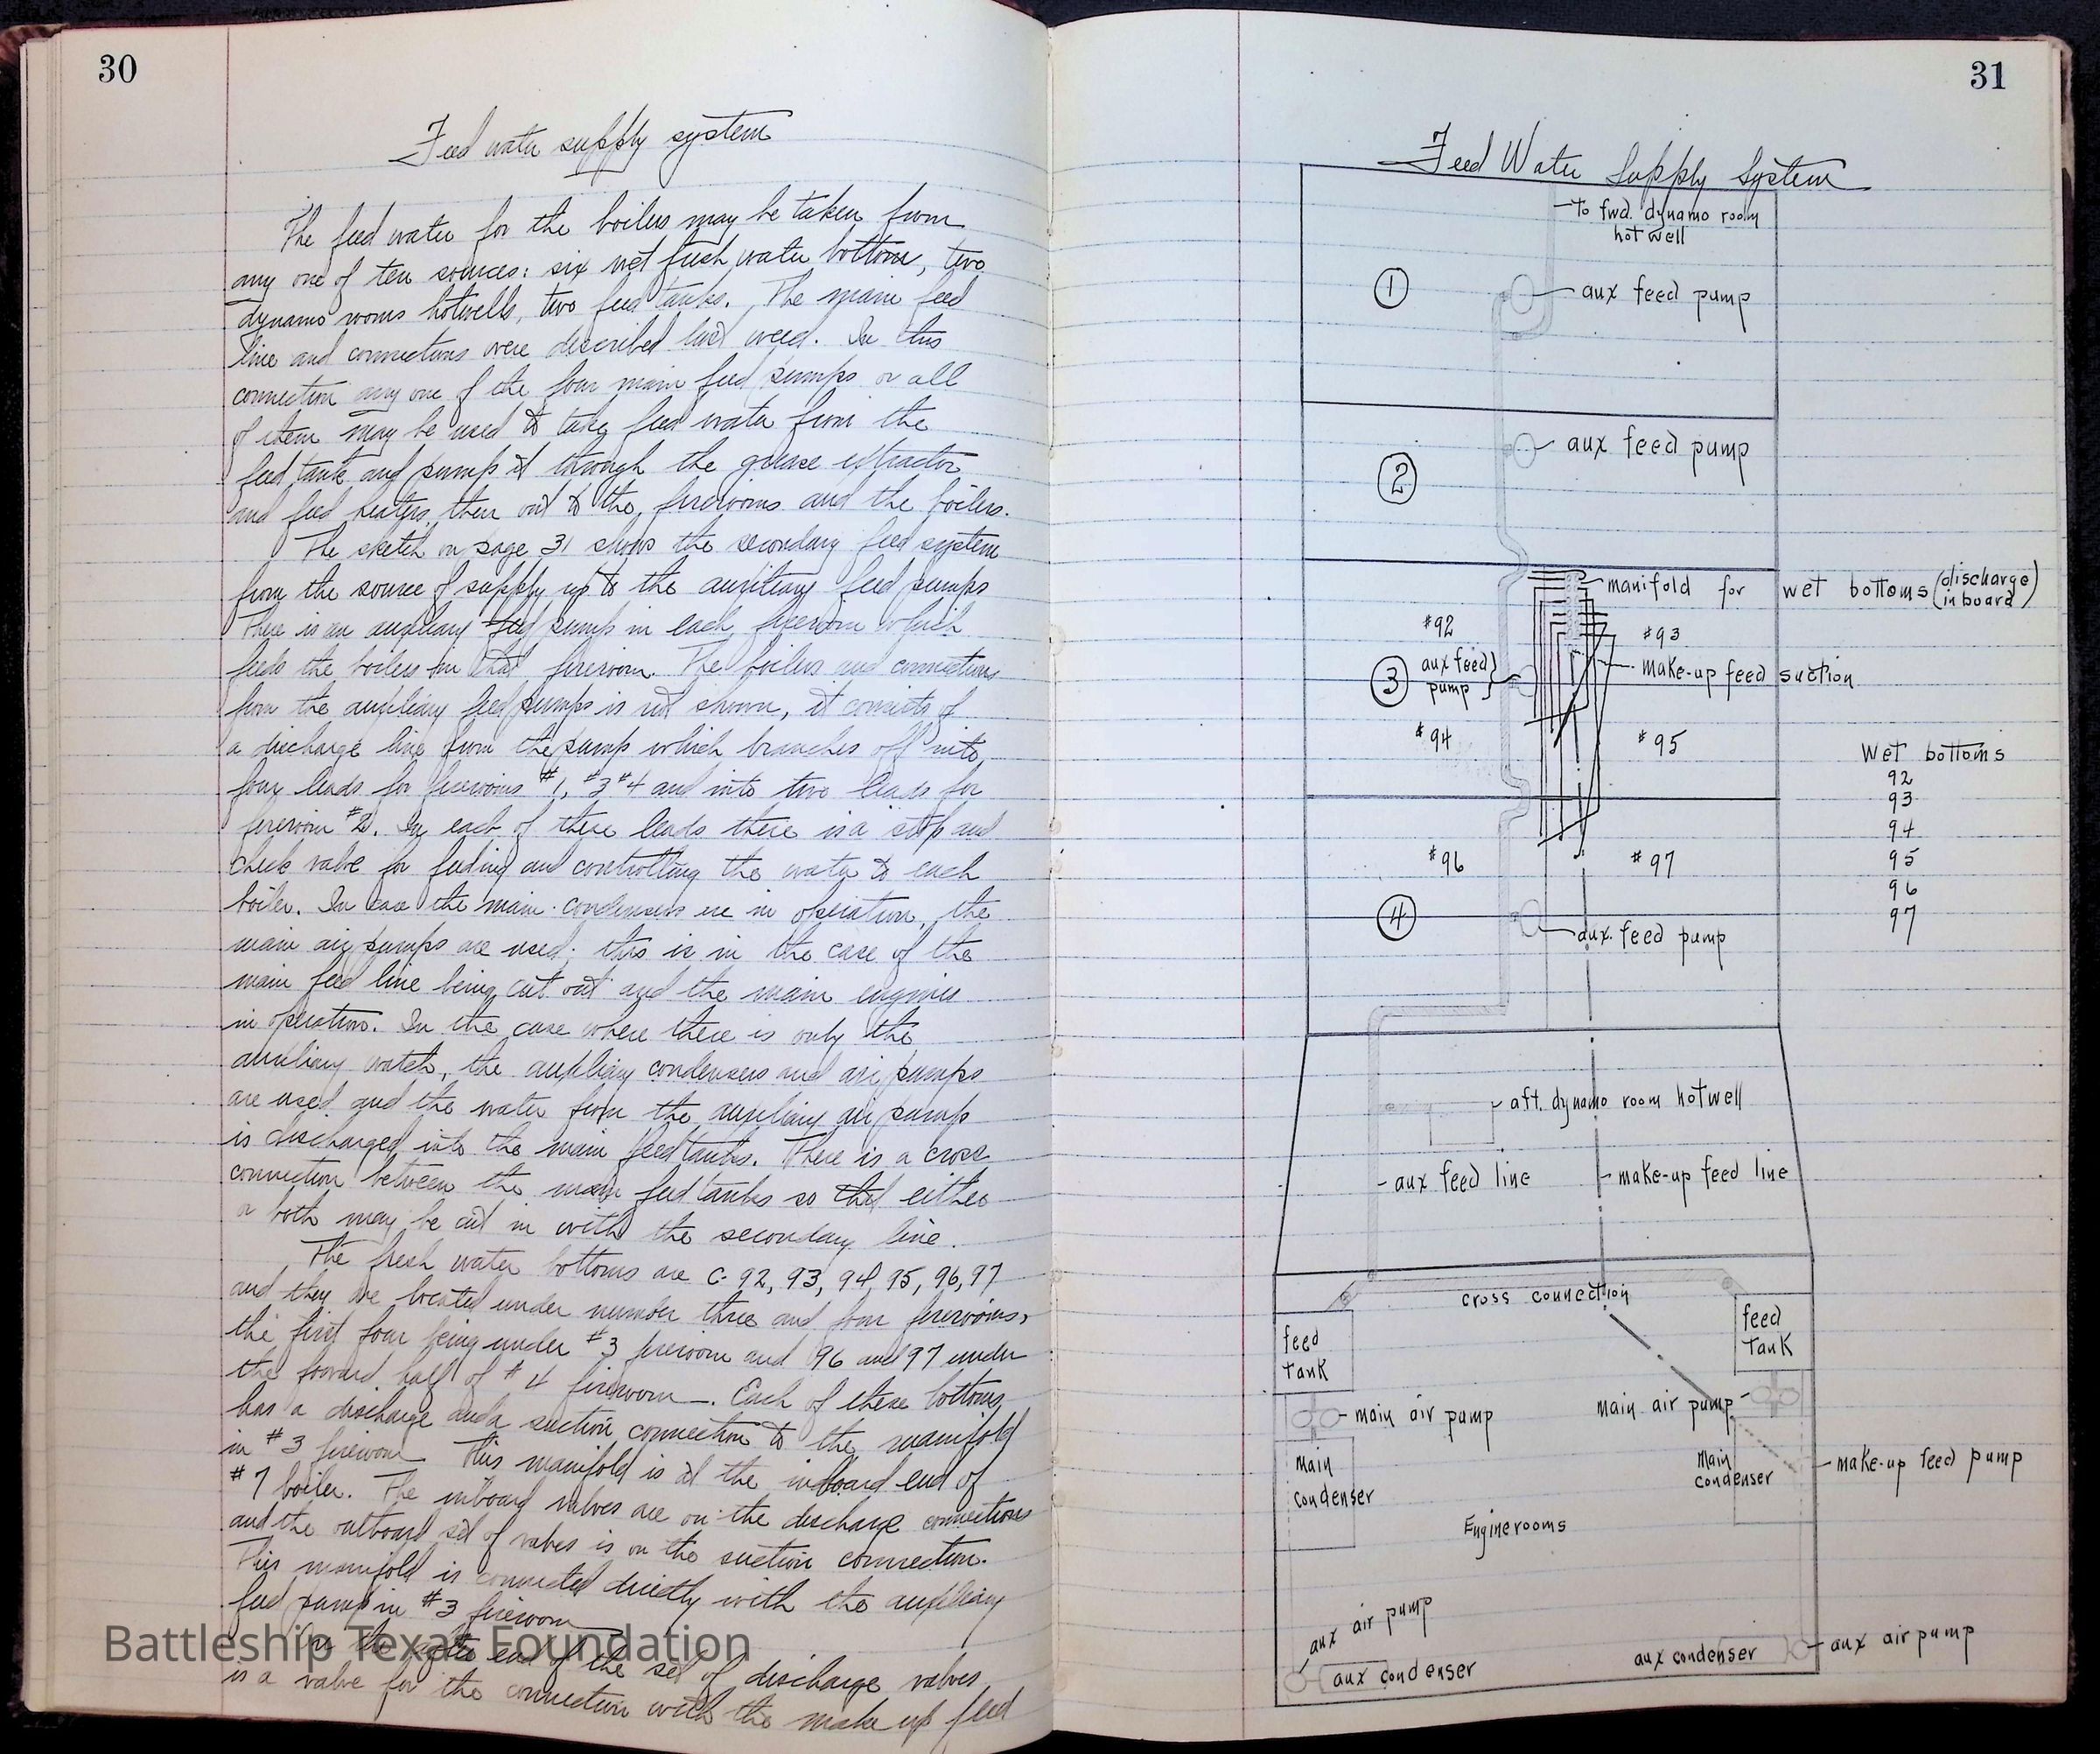 30
Feed water supply system
The feed water for the boilers may be taken from
any one of ten sources: six wet fresh water bottoms, two
dynamo rooms hotwells, two feed tanks. The main feed
line and connections were described last week. In this
connection any one of the four main feed pumps or all
of them may be used to take feed water from the
feed tank and pump it through the grease extractor
and feed heaters, then out to the firerooms and the boilers.
The sketch on page 31 shows the secondary feed system
from the source of supply up to the auxiliary feed pumps
There is an auxiliary feed pump in each fireroom which
feeds the boilers in that fireroom. The boilers and connections
from the auxiliary feed pumps is not shown, it consists of
a discharge line from the pump which branches off into
four leads for firerooms #1, #3 #4 and into two leads for
fireroom #2. In each of these leads there is a stop and
check valve for feeding and controlling the water to each
boiler. In case the main condensers are in operation, the
main air pumps are used; this is in the case of the
main feed line being cut out and the main engines
in operation. In the case where there is only the
auxiliary watch, the auxiliary condensers and air pumps
are used and the water from the auxiliary air pumps
is discharged into the main feed tanks. There is a cross
connection between the main feed tanks so that either
or both may be cut in with the secondary line.
The fresh water bottoms are C-92, 93, 94, 95, 96, 97
and they are located under number three and four firerooms,
the first four being under #3 fireroom and 96 and 97 under
the forward half of #4 fireroom. Each of these bottoms
has a discharge and a suction connection to the manifold
in #3 fireroom This manifold is at the inboard end of
#7 boiler. The inboard valves are on the discharge connections
and the outboard set of valves is on the suction connection.
This manifold is connected directly with the auxiliary
feed pump in #3 fireroom
On the after end of the set of discharge valves
is a valve for the connection with the make up feed
Battleship Texas Foundation
31
Feed Water Supply System
To fwd. dynamo room
hot well
1
aux feed pump
2
aux feed pump
manifold for wet bottoms (discharge
inboard)
#92
#93
3
aux feed
pump
make-up feed suction
#94
#95
Wet bottoms
92
93
94
95
96
97
#96
#97
4
aux. feed pump
aft. dynamo room hotwell
aux feed line
make-up feed line
cross connection
feed
tank
feed
tank
main air pump
main air pump
main
condenser
main
condenser
make-up feed pump
Enginerooms
aux air pump
aux condenser
aux condenser
aux air pump